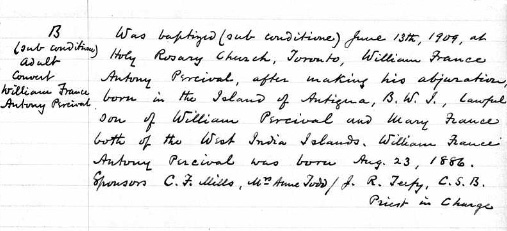 B
(sub conditione)
adult
Convert
William France
Antony Percival
Was baptized (sub conditione) June 13th, 1909, at
Holy Rosary Church, Toronto, William France
Antony Percival, after making his abjuration,
born in the Island of Antigua, B.W.I., lawful
son of William Percival and Mary France
both of the West India Islands. William France
Antony Percival was born Aug. 23, 1886.
Sponsors C. F. Mills, Mrs Anne Todd / J. R. Teefy, C.S.B.
Priest in Charge